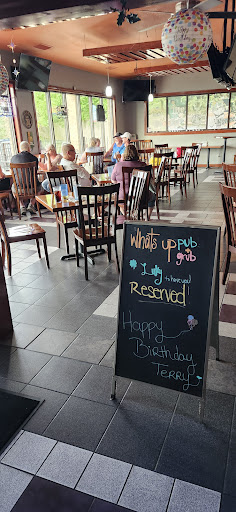 What's up pub
grub
Lucky to have you!
Reserved
Happy
Birthday
Terry